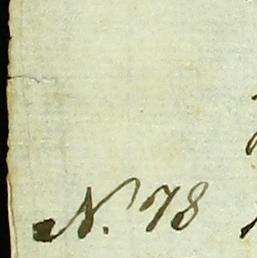 N. 78